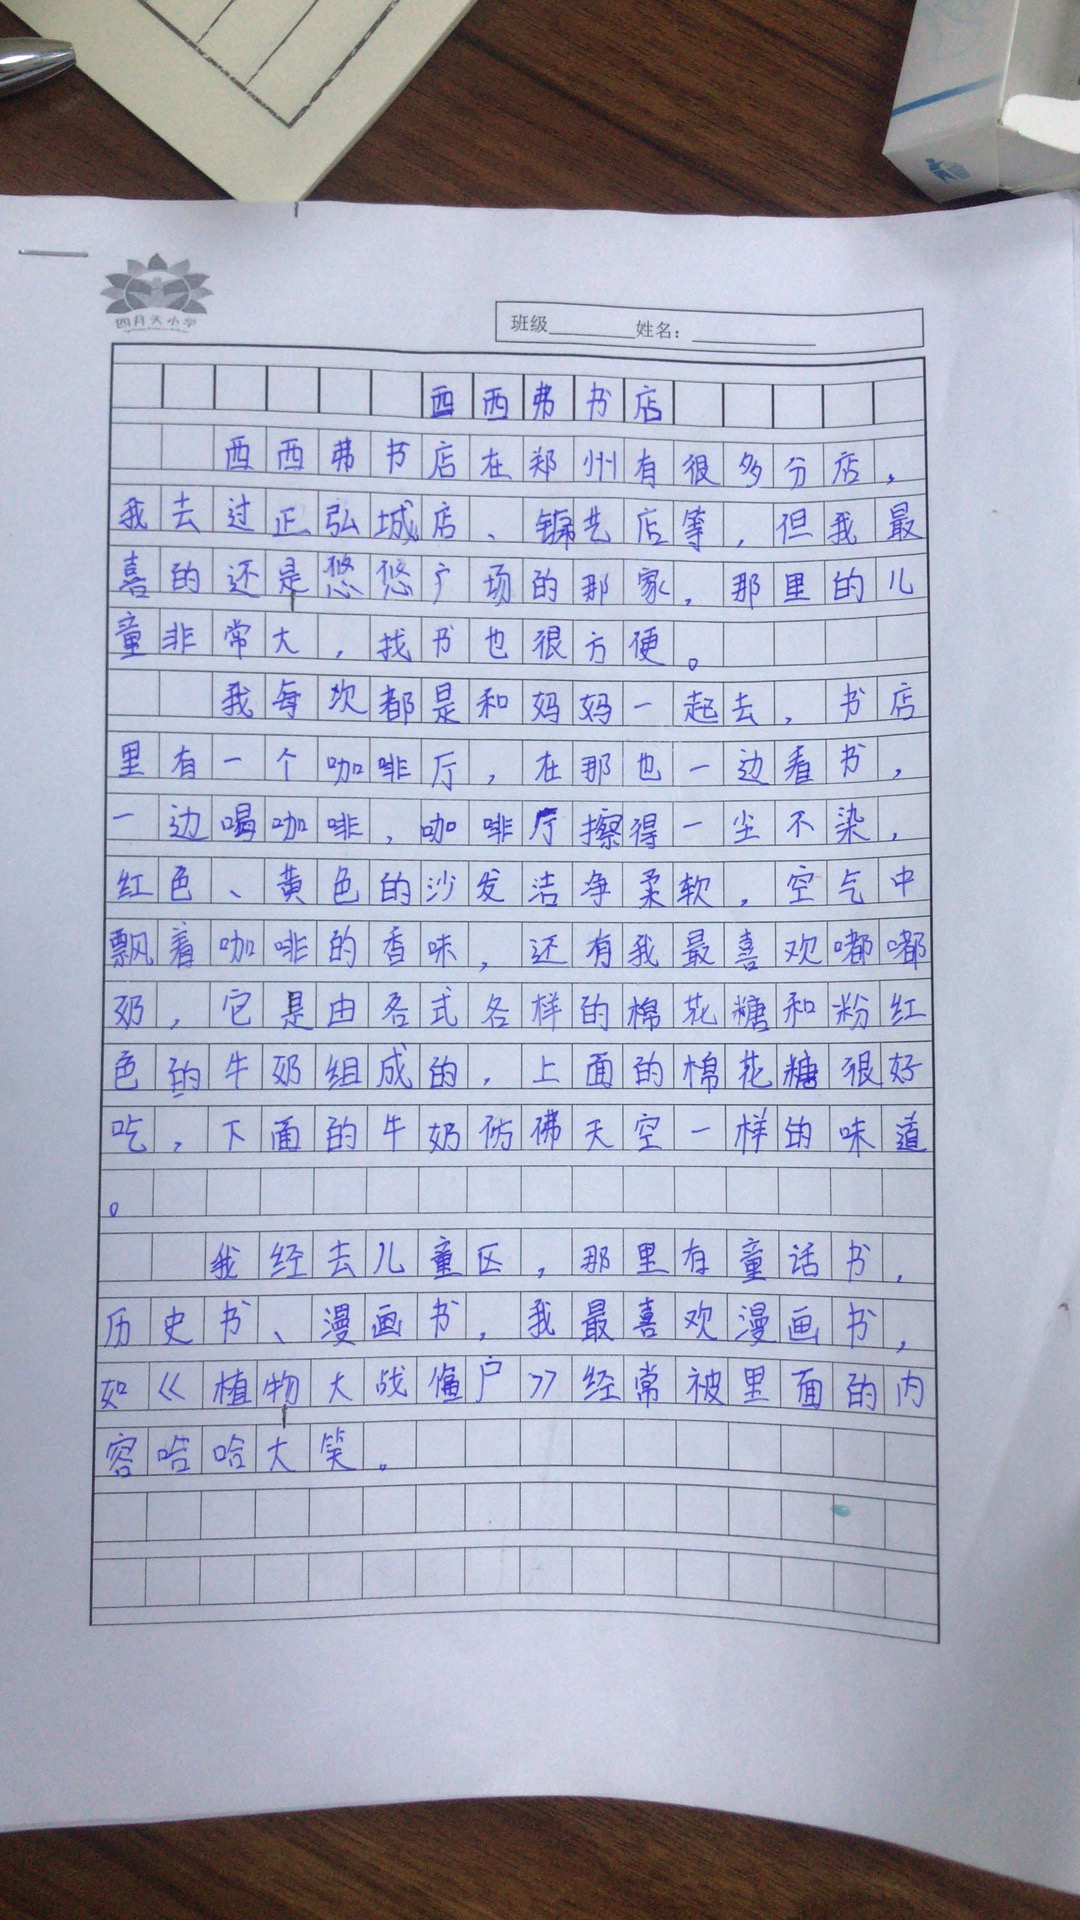 四月天小学
班级________姓名：____________
西西弗书店
西西弗书店在郑州有很多分店，
我去过正弘城店、锦艺店等，但我最
喜的还是悠悠广场的那家，那里的儿
童非常大，找书也很方便。
我每次都是和妈妈一起去，书店
里有一个咖啡厅，在那也一边看书，
一边喝咖啡，咖啡厅擦得一尘不染，
红色、黄色的沙发洁净柔软，空气中
飘着咖啡的香味，还有我最喜欢嘟嘟
奶，它是由各式各样的棉花糖和粉红
色的牛奶组成的，上面的棉花糖很好
吃，下面的牛奶仿佛天空一样的味道
。
我经去儿童区，那里有童话书，
历史书、漫画书，我最喜欢漫画书，
如《植物大战僵尸》经常被里面的内
容哈哈大笑。